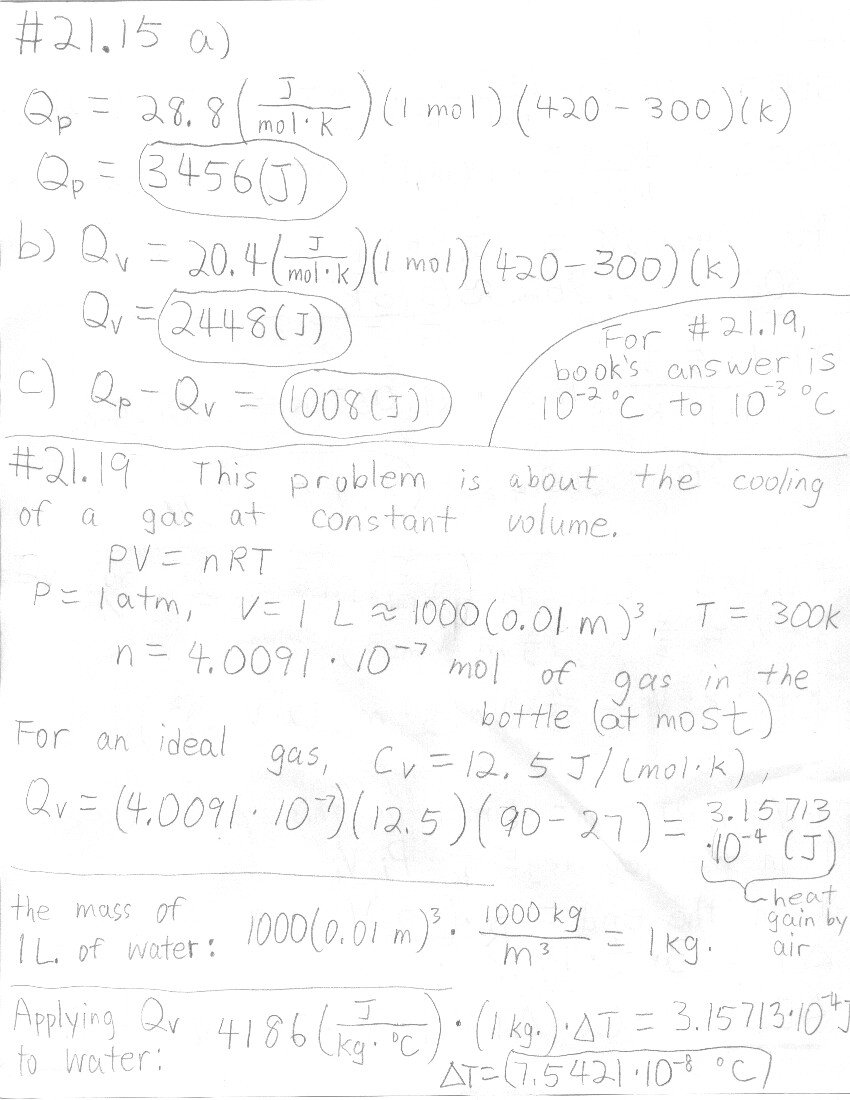 #21.15 a)
Qp = 28.8 (J/mol·k) (1 mol) (420 - 300) (k)
Qp = 3456 (J)
b) Qv = 20.4 (J/mol·k) (1 mol) (420 - 300) (k)
Qv = 2448 (J)
c) Qp - Qv = 1008 (J)
For #21.19,
book's answer is
10⁻² °C to 10⁻³ °C
#21.19 This problem is about the cooling
of a gas at constant volume.
PV = nRT
P = 1 atm, V = 1 L ≈ 1000(0.01 m)³, T = 300k
n = 4.0091 · 10⁻⁷ mol of gas in the
bottle (at most)
For an ideal gas, Cv = 12.5 J/(mol·k),
Qv = (4.0091 · 10⁻⁷)(12.5)(90 - 27) = 3.15713
·10⁻⁴ (J)
heat
gain by
air
the mass of
1 L. of water: 1000(0.01 m)³ · 1000 kg/m³ = 1 kg.
Applying Qv
to water: 4186 (J/kg·°C) · (1 kg.) · ΔT = 3.15713·10⁻⁴J
ΔT = (7.5421 · 10⁻⁸ °C)